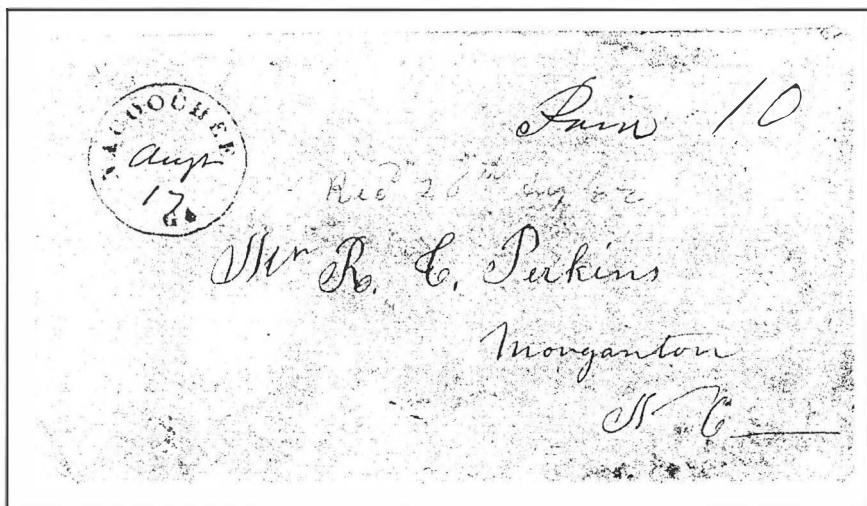 NACOOCHEE
Augt
17
Ga
Paid 10
Recd 20th Aug 62
Mr R. C. Perkins
Morganton
N C